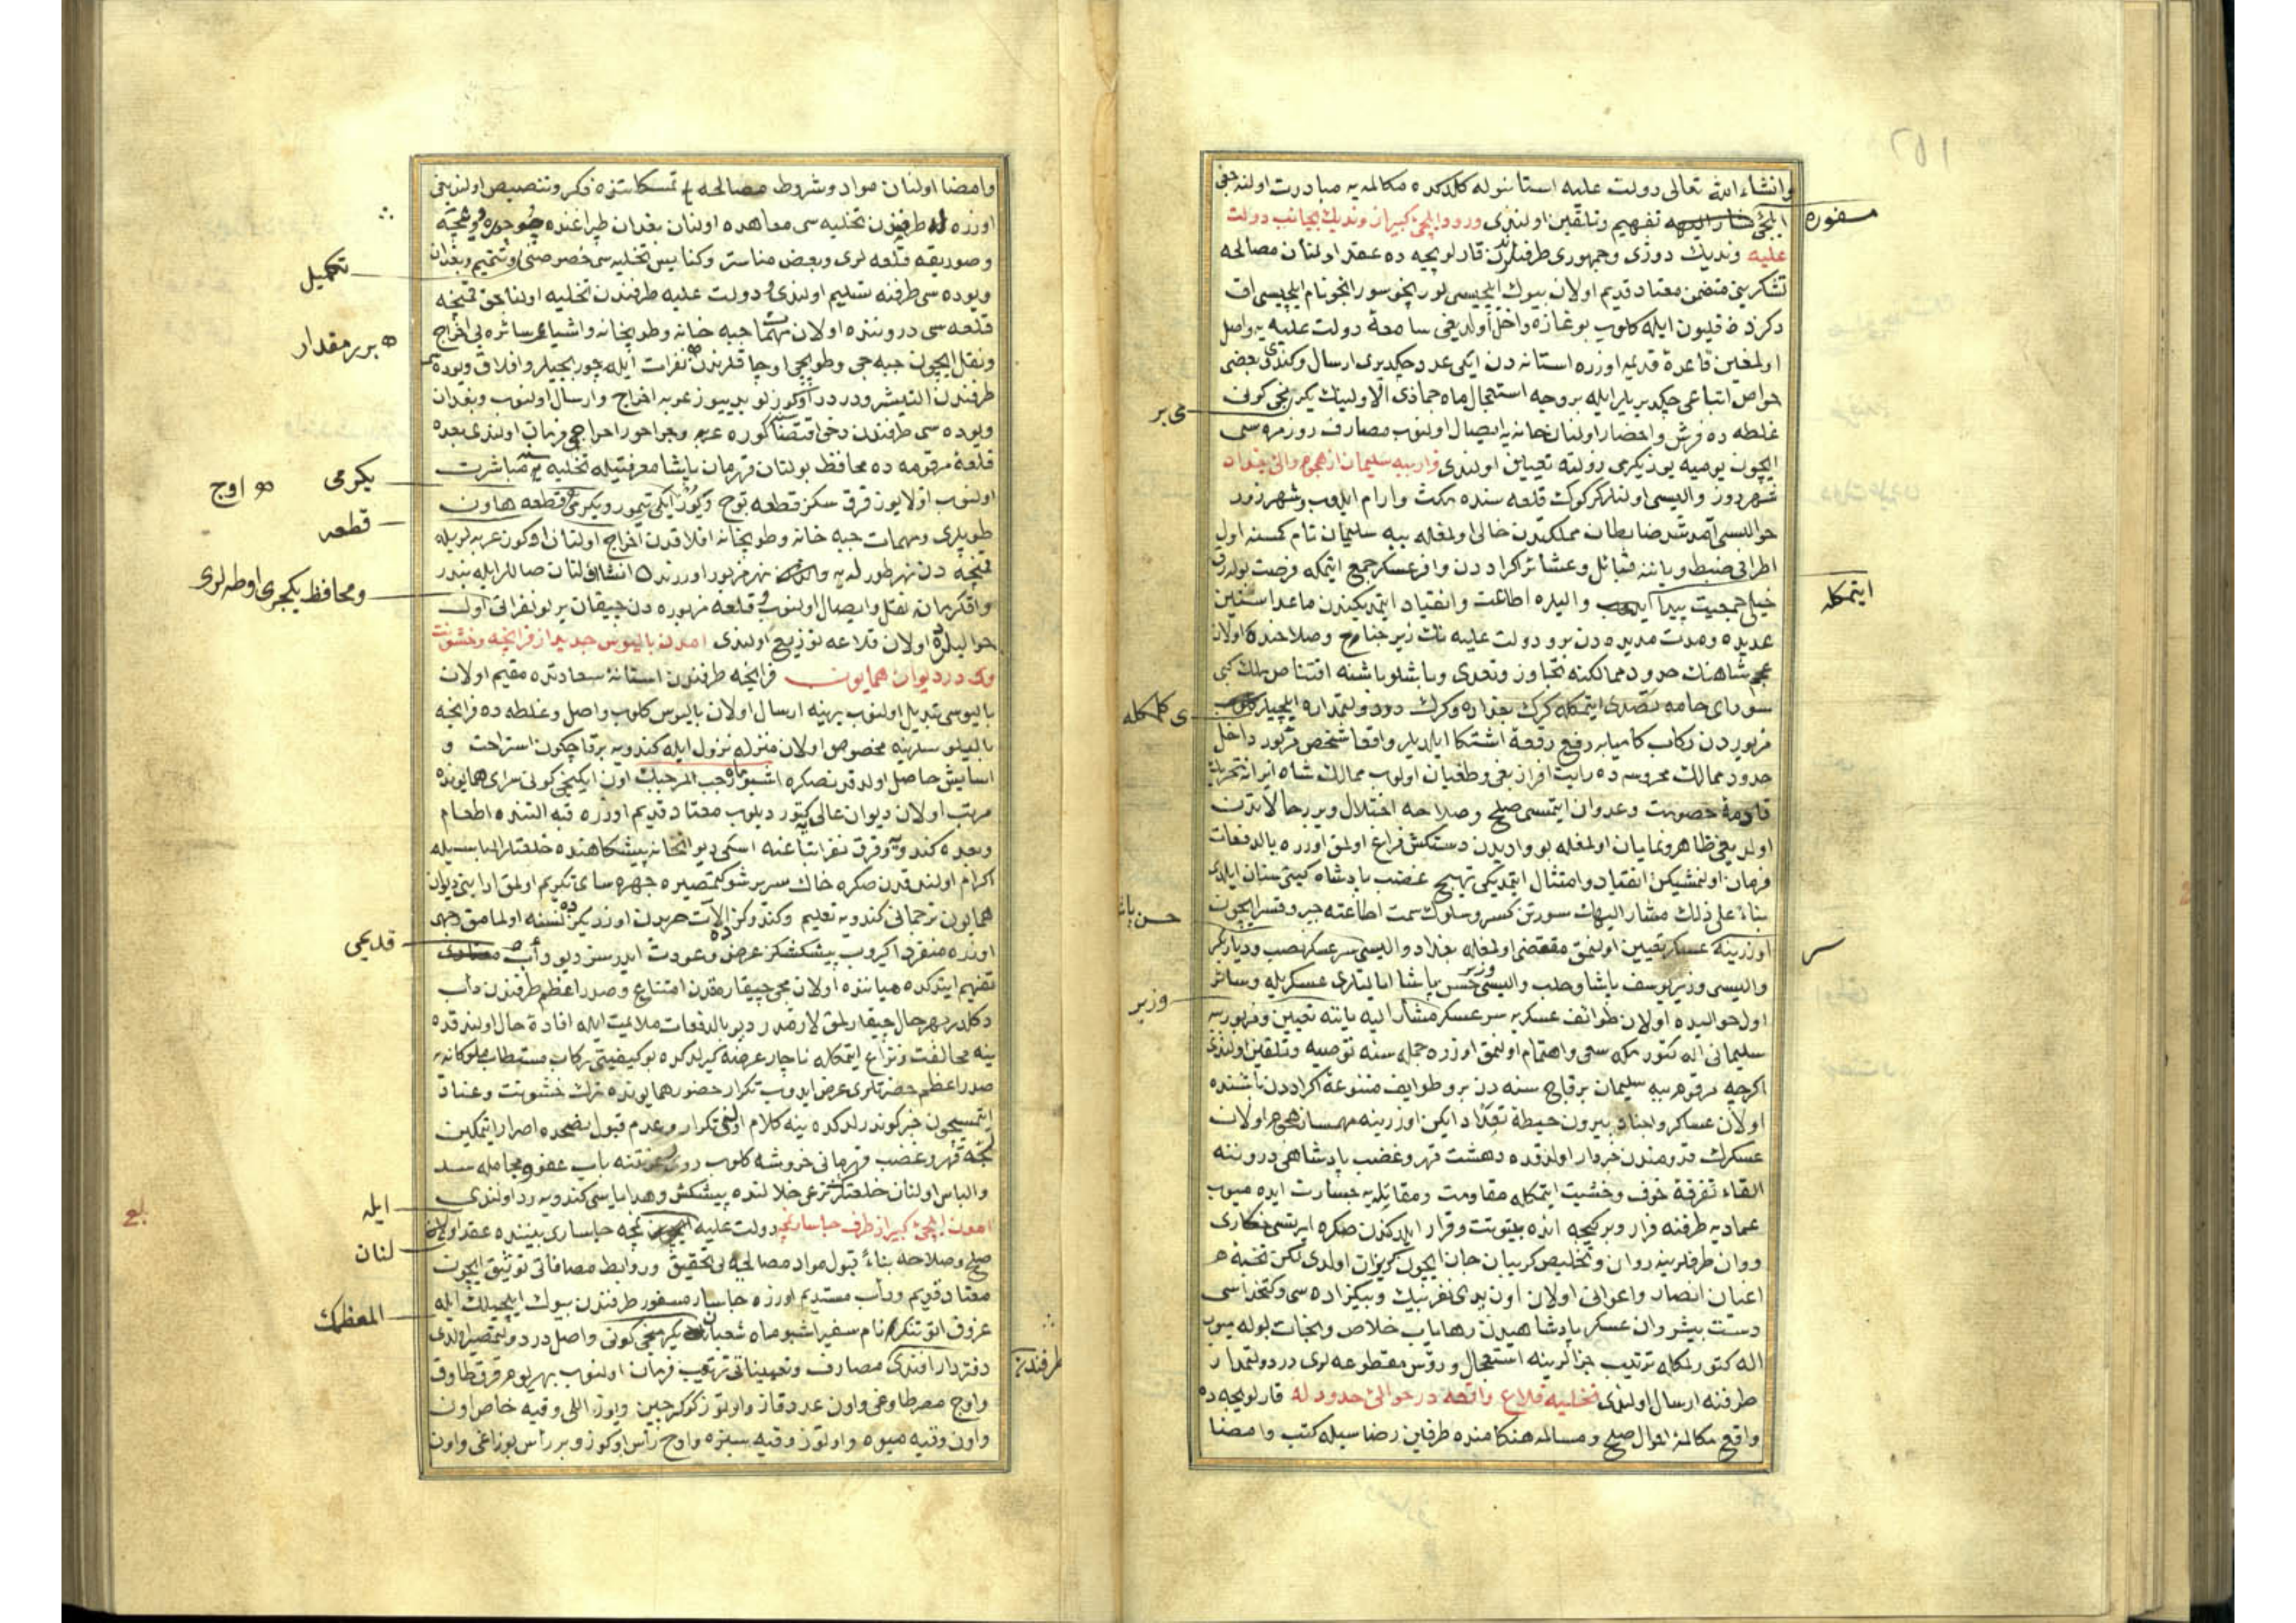 وانشاء الله تعالی دولت علیه استانبوله کلدکده مکالمه یه مبادرت اولنه جغی
ایلچئ تفهیم وتلقین اولندی ورود ایلچئ کبیر از وندیك بجانب دولت
مسفوره
علیه وندیك دوژی وجمهوری طرفلرندن قارلوبچه ده عقد اولنان مصالحه
تشکرینی متضمن معتاد قدیم اولان بیوك ایلچیسی لورنجو سورانجو نام ایلچیسی اق
دکزده قلیون ایله کلوب بوغازه داخل اولدیغی سامعهٔ دولت علیه یه واصل
اولمغین قاعدهٔ قدیمه اوزره استانه دن ایکی عدد چکدیری ارسال وکندی بعضی
خواص اتباعی چکدیریلر ایله بر وجه استعجال ماه جماذی الاولینك یکرمنجی کونی
می بر
غلطه ده فرش واحضار اولنان خانه یه ایصال اولنوب مصارف روزمره سی
ایچون یومیه یوز یکرمی زولته تعیین اولندی فرار ببه سلیمان از هجوم والئ بغداد
شهردوز والیسی اولنلر کرکوك قلعه سنده مکث وارام ایدوب وشهرزور
حوالیسی آمد شد ضابطان مملکتدن خالی اولمغله ببه سلیمان نام کمسنه اول
اطرافی ضبط ویاننه قبائل وعشائر اکراددن وافر عسکر جمع ایتمکه فرصت بولدرق
خیلی جمعیت پیدا والیلره اطاعت وانقیاد ایتمدیکندن ماعدا سنین
ایتمکله
عدیده ومدت مدیده دن برو دولت علیه نك زیر جناح وصلاحنده اولان
عجم شاهنك حدود ممالکنه تجاوز وتعدی وباشلو باشنه اقتناص ملك کبی
سودای خامه تصدی ایتمکله کرك بغداده وکرك در دولتمداره ایلچیلر
ی کلمکله
مزبوردن رکاب کامیابه رفع رقعهٔ اشتکا ایلدیلر واقعا شخص مزبور داخل
حدود ممالك محروسه ده رایت افراز بغی وطغیان اولوب ممالك شاه ایرانه تحریك
قادمهٔ خصومت وعدوان ایتمسی صلح وصلاحه اختلال ویرر حالاتدن
اولدیغی ظاهر ونمایان اولمغله بو وادیدن دستکش فراغ اولمق اوزره بالدفعات
فرمان اولنمشیکن انقیاد وامتثال ایتمدیکی تهییج غضب پادشاه کیتی ستان ایلدی
بناءً علی ذلك مشار الیهك سورتن کسر وسلوك سمت اطاعته جبر وقسر ایچون
حسن پاشا
اوزرینه عسکر تعیین اولنمق مقتضی اولمغله بغداد والیسی سرعسکر نصب ودیاربکر
سر
والیسی وزیر یوسف پاشا وحلب والیسی وزیر حسن پاشا ایالتلری عسکریله وسائر
وزیر
اول حوالیده اولان طوائف عسکریه سرعسکر مشار الیه یاننه تعیین ومزبور ببه
سلیمانی اله کتورمکه سعی واهتمام اولنمق اوزره جمله سنه توصیه وتلقین اولندی
اکرچه مرقوم ببه سلیمان برقاچ سنه دن برو طوایف متنوعهٔ اکراددن باشنده
اولان عساکر واجناد بیرون حیطهٔ تعداد ایکن اوزرینه مهمساز هجوم اولان
عسکرك قدومندن خبردار اولدقده دهشت قهر وغضب پادشاهی دروننه
القاء تفرقهٔ خوف وخشیت ایتمکله مقاومت ومقابله یه جسارت ایده میوب
عمادیه طرفنه فرار وبر کیجه انده بیتوتت وقرار ایلدکدن صکره ایرتسی
ووان طرفلرینه روان وتخلیص کریبان جان ایچون کریزان اولدی لکن نخبهٔ
اعیان انصار واعوانی اولان اون یدی نفر بیك وبیکزاده سی وکتخداسی
دست پیشروان عسکر پادشاهیدن رهایاب خلاص ونجات بوله میوب
اله کتورلمکله ترتیب جزالرینه استعجال ورؤس مقطوعه لری در دولتمدار
طرفنه ارسال اولندی تخلیهٔ قلاع واقعه در حوالئ حدود له قارلوبچه ده
واقع مکالمهٔ احوال صلح ومسالمه هنکامنده طرفین رضاسیله کتب وامضا
وامضا اولنان مواد وشروط مصالحه تمسکاتنده ذکر وتنصیص اولندیغی
اوزره له طرفندن تخلیه سی معاهده اولنان بغدان طپراغنده
وصوریقه قلعه لری وبعض مناستر وکنایس تخلیه سی خصوصنی وتتمیم وبغدان
تکمیل
ویوده سی طرفنه تسلیم اولندی ودولت علیه طرفندن تخلیه اولناجق قمنیچه
قلعه سی دروننده اولان مهمات جبه خانه وطوپخانه واشیاء سائره یی اخراج
بر بر مقدار
ونقل ایچون جبه جی وطوپجی اوجاقلرندن نفرات ایله چوربجیلر وافلاق ویوده
طرفندن التمیشر ودردر اوکوزلو یدییوز عربه اخراج وارسال اولنوب وبغدان
ویوده سی طرفندن دخی اقتضاسنه کوره عربه وجراخور اخراجی فرمان اولندی بعده
قلعهٔ مرقومه ده محافظ بولنان قهرمان پاشا معرفتیله تخلیه یه مباشرت
یکرمی
اوج
اولنوب اولا یوز قرق سکز قطعه توج ویوز ایکی تیمور ویکرمی قطعه هاون
قطعه
طوپلری ومهمات جبه خانه وطوپخانه افلاقدن اخراج اولنان اوکوز عربه لریله
قمنیچه دن نهر طورله یه و نهر مزبور اوزرنده انشا اولنان صاللر ایله بندر
ومحافظ یکیچری اوطه لری
واقکرمانه نقل وایصال اولنوب وقلعه مزبوره دن چیقان یرلو نفراتی اول
حوالیلرده اولان قلاعه توزیع اولندی امدن بالیوس جدید از فرانچه وخشونت
وی در دیوان همایون فرانچه طرفندن استانهٔ سعادتده مقیم اولان
بالیوسی تبدیل اولنوب یرینه ارسال اولان بالیوس کلوب واصل وغلطه ده فرانچه
بالیوسلرینه مخصوص اولان منزله نزول ایله کندویه برقاچ کون استراحت و
اسایش حاصل اولدقدن صکره اشبو ماه رجب المرجبك اون ایکنجی کونی سرای همایونده
مرتب اولان دیوان عالی یه کتوردیلوب معتاد قدیم اوزره قبه التنده اطعام
وبعده کندویه وقرق نفر اتباعنه اسکی دیوانخانه پیشکاهنده خلعتلر الباسیله
اکرام اولندقدن صکره خاك سریر شوکتمصیره چهره سای تکریم اولمق ادابنی دیوان
همایون ترجمانی کندویه تعلیم وکندوکز الات حربدن اوزریکزده نسنه اولمامق وجهی
اوزره منفرد اکیروب پیشکشکز عرض وعودت ایدرسز دیو دأب
قدیمی
تفهیم ایتدکده میاننده اولان مجی چیقارمقدن امتناع وصدر اعظم طرفندن دأب
دکلدر بهر حال چیقارلمق لازمدر دیو بالدفعات ملایمت ایله افادهٔ حال اولندقده
ینه مخالفت ونزاع ایتمکله ناچار عرضه کیرلدکده بو کیفیتی رکاب مستطاب ملوکانه یه
صدر اعظم حضرتلری عرض ایدوب تکرار حضور همایونده ترك خشونت وعناد
ایتمسیچون خبر کوندرلدکده ینه کلام اولنی تکرار وعدم قبول نصحده اصرار ایتمکین
لجهٔ قهر وغضب قهرمانی خروشه کلوب روی رعونتنه باب عفو ومجامله سد
والباس اولنان خلعتلری نزعی خلالنده پیشکش وهدایاسی کندویه رد اولندی
ایله
امدن ایلچئ کبیر از طرف چاسار نمچه دولت علیه نمچه چاساری بیننده عقد اولنان
لنان
صلح وصلاحه بناءً قبول مواد مصالحه یی تحقیق وروابط مصافاتی توثیق ایچون
معتاد قدیم ودأب مستدیم اوزره چاسار مسفور طرفندن بیوك ایلچیلك ایله
المعظمك
غروف اتوتنکر نام سفیر اشبو ماه شعبان یکرمنجی کونی واصل در دولتمصیر اولدی
طرفندن
دفتردار افندی مصارف وتعییناتی ترتیب فرمان اولنوب بهر یوم قرق طاوق
واوج مصر طاوغی واون عدد قاز واوتوز کوکرجین ویوز اللی وقیه خاص اون
واون وقیه میوه واوتوز وقیه سبزه واوج رأس اوکوز وبر رأس بوزاغی واون